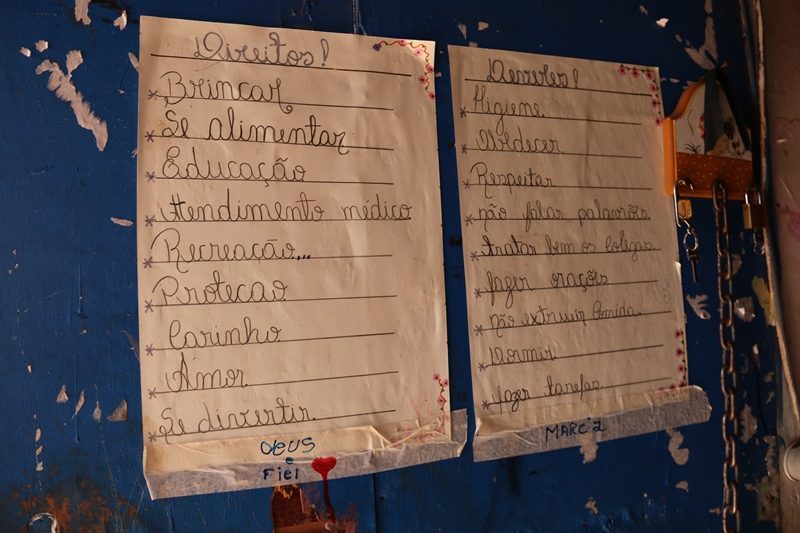 ¡Direitos!
* Brincar
* Se alimentar
* Educação
* Atendimento médico
* Recreação...
* Protecao
* Carinho
* Amor
* Se divertir
Deus
é
Fiel
¡Deveres!
* Higiene
* Obdecer
* Respeitar
* não falar palavrões
* tratar bem os colegas
* fazer orações
* não extruir Comida.
* Dormir
* fazer tarefas
MARCIA